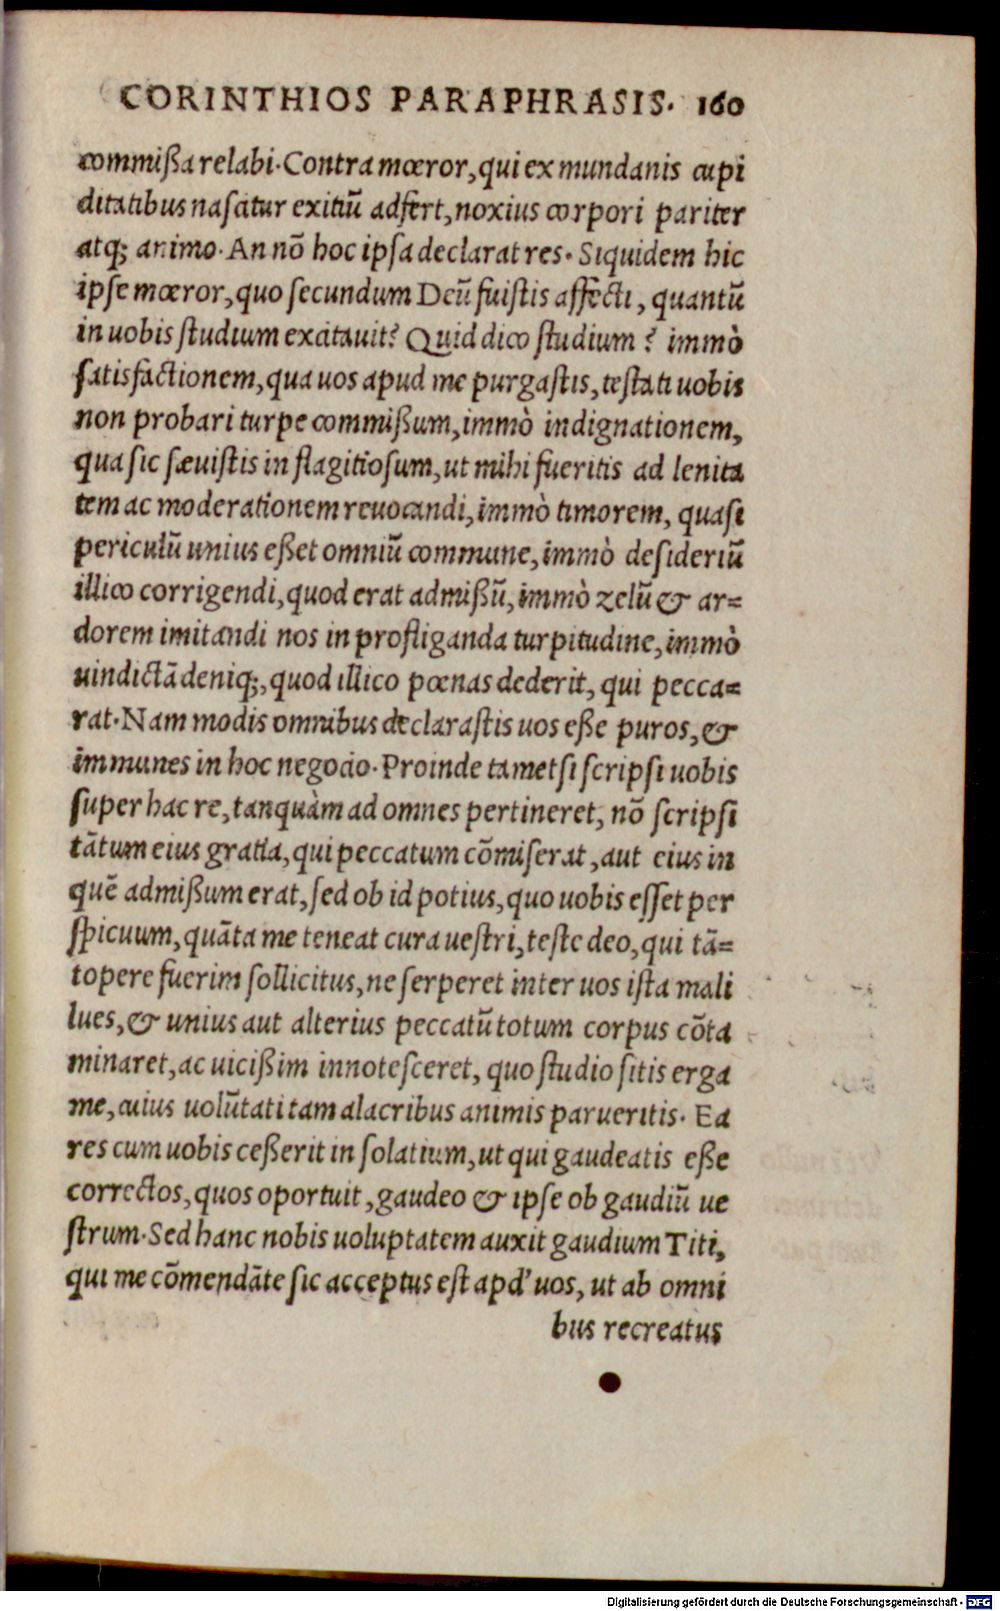 CORINTHIOS PARAPHRASIS. 160
commißa relabi. Contra mœror, qui ex mundanis cupi
ditatibus nascitur exitiũ adfert, noxius corpori pariter
atq; animo. An nõ hoc ipsa declarat res. Siquidem hic
ipse mœror, quo secundum Deũ fuistis affecti, quantũ
in uobis studium excitauit? Quid dico studium? immò
satisfactionem, qua uos apud me purgastis, testati uobis
non probari turpe commißum, immò indignationem,
qua sic sæuistis in flagitiosum, ut mihi fueritis ad lenita
tem ac moderationem reuocandi, immò timorem, quasi
periculũ unius eßet omniũ commune, immò desideriũ
illico corrigendi, quod erat admißũ, immò zelũ & ar=
dorem imitandi nos in profliganda turpitudine, immò
uindictã deniq;, quod illico pœnas dederit, qui pecca=
rat. Nam modis omnibus declarastis uos eße puros, &
immunes in hoc negocio. Proinde tametsi scripsi uobis
super hac re, tanquàm ad omnes pertineret, nõ scripsi
tãtum eius gratia, qui peccatum cõmiserat, aut eius in
quẽ admißum erat, sed ob id potius, quo uobis esset per
spicuum, quãta me teneat cura uestri, teste deo, qui tã=
topere fuerim sollicitus, ne serperet inter uos ista mali
lues, & unius aut alterius peccatũ totum corpus cõta
minaret, ac uicißim innotesceret, quo studio sitis erga
me, cuius uolũtati tam alacribus animis parueritis. Ea
res cum uobis ceßerit in solatium, ut qui gaudeatis eße
correctos, quos oportuit, gaudeo & ipse ob gaudiũ ue
strum. Sed hanc nobis uoluptatem auxit gaudium Titi,
qui me cõmendãte sic acceptus est apd' uos, ut ab omni
bus recreatus
Digitalisierung gefördert durch die Deutsche Forschungsgemeinschaft - DFG